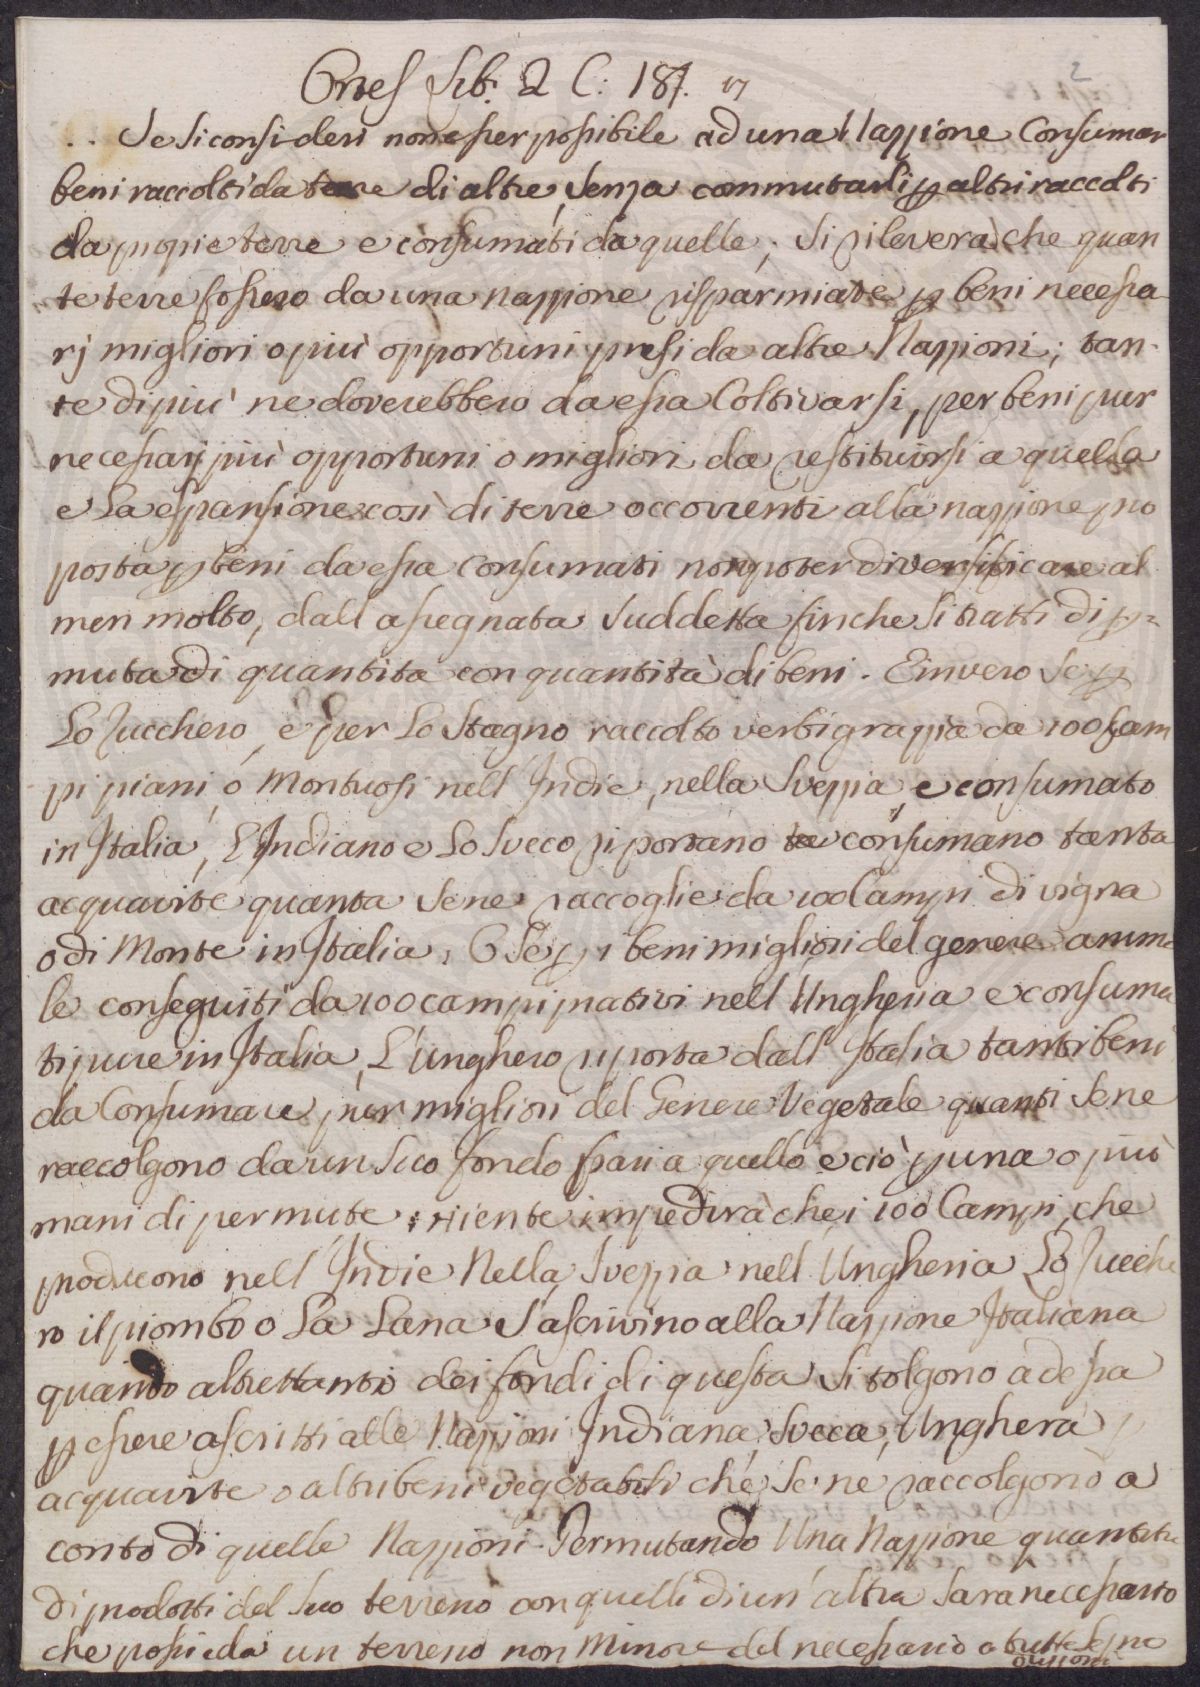 Ortes Lib. 2 C: 187. 17
.. Se si consideri non esser possibile ad una Nazzione Consumar
beni raccolti da terre di altre, senza commutarli p altri raccolti
da propie terre e consumati da quelle; si rileverà che quan
te terre fossero da una nazzione risparmiate p beni necessa
rj migliori o più opportuni presi da altre Nazzioni; tan-
te di più ne doverebbero da essa Coltivarsi, per beni pur
necessarj più opportuni o migliori da restituirsi a quella
e La espansione così di terre occorrenti alla nazzione pro
posta p beni da essa Consumati non poter diversificare al
men molto, dall assegnata suddetta finche si tratti di p=
muta di quantità con quantità di beni. E invero se p
Lo Zucchero, e per Lo Stagno raccolto verbigrazzia da 100 Cam
pi piani, o Montuosi nell' Indie, nella Svezzia, e consumato
in Italia, L'Indiano e Lo Sveco ri portano e consumano tanta
acquavite quanta se ne raccoglie da 100 Campi di vigna
o di Monte in Italia, O se p i beni migliori del genere anima
le conseguiti da 100 campi prativi nell' Ungheria e consuma
ti pure in Italia, L'Unghero riporta dall' Italia tanti beni
da Consumare, pur migliori del Genere Vegetale quanti se ne
raccolgono da un suo fondo pari a quello e ciò p una o più
mani di permute, niente impedirà che i 100 Campi, che
producono nell' Indie Nella Svezzia nell' Ungheria Lo Zucche
ro il piombo o La Lana s'ascrivino alla Nazzione Italiana
quando altrettanti dei fondi di questa si tolgono ad essa
p essere ascritti alle Nazzioni Indiana, Sveca, Unghera p
acquavite o altri beni vegetabili che se ne raccolgono a
conto di quelle Nazzioni. Permutando Una Nazzione quantità
di prodotti del suo terreno con quelli di un' altra sarà necessario
che possieda un terreno non Minore del necessario a tutte le pro